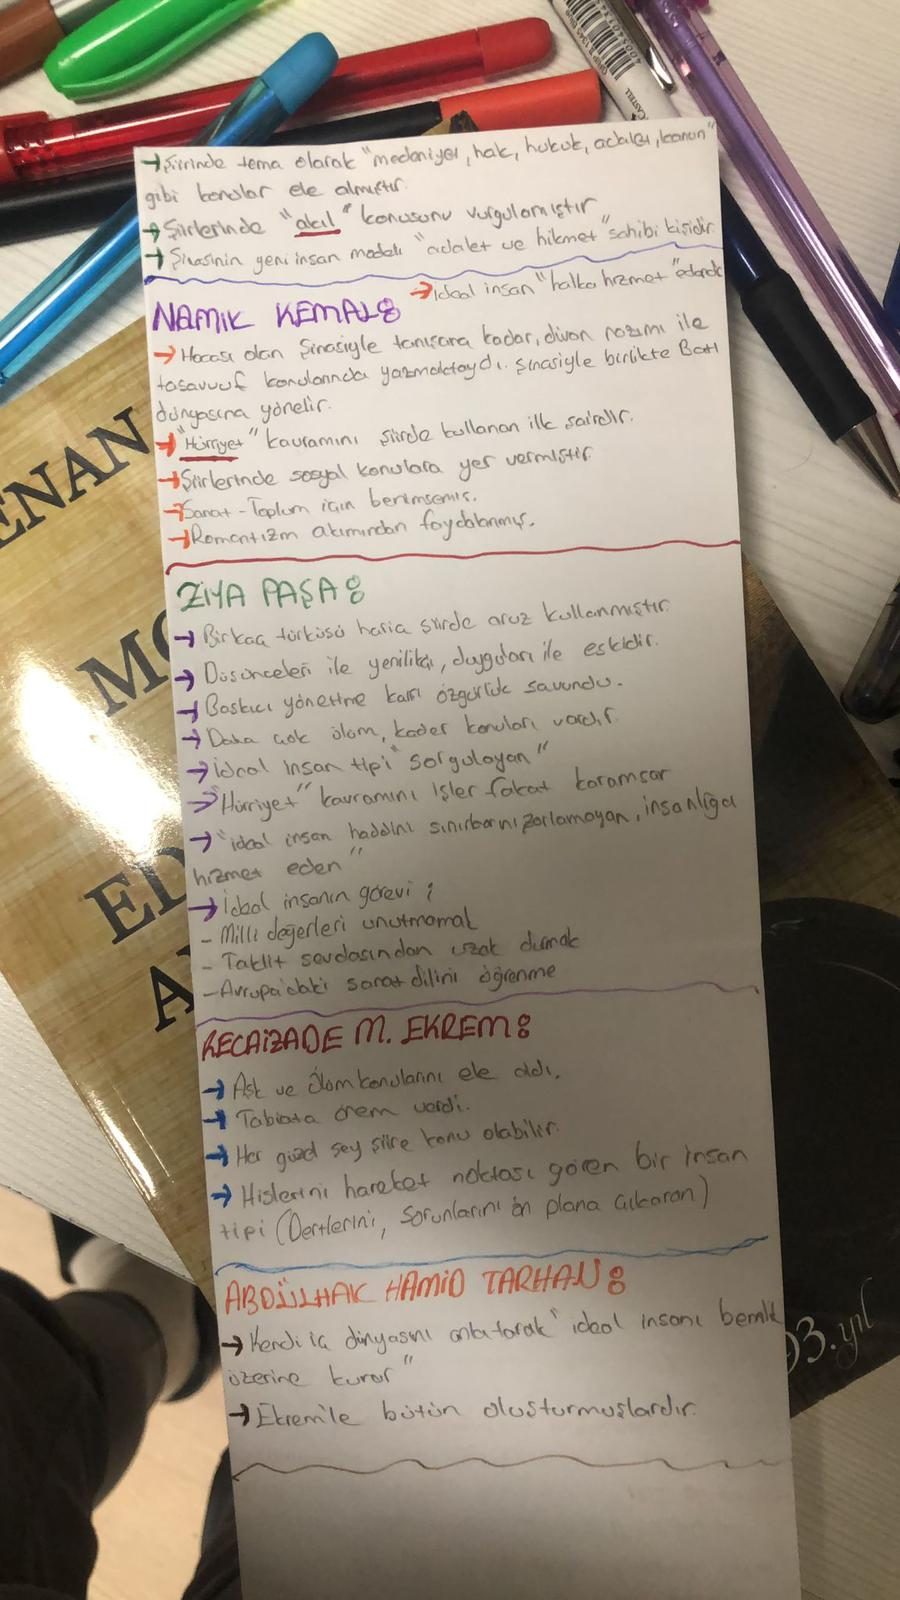 → Şiirinde tema olarak "medeniyet, hak, hukuk, adalet, kanun"
gibi konular ele almıştır.
→ Şiirlerinde "akıl" konusunu vurgulamıştır
→ Şinasinin yeni insan modeli "adalet ve hikmet" sahibi kişidir.
NAMIK KEMAL:
→ ideal insan "halka hizmet" ederek
→ Hocası olan Şinasiyle tanışana kadar, divan nazımı ile
tasavvuf konularında yazmaktaydı. Şinasiyle birlikte Batı
dünyasına yönelir.
→ "Hürriyet" kavramını şiirde kullanan ilk şairdir.
→ Şiirlerinde sosyal konulara yer vermiştir.
→ Sanat - Toplum için benimsemiş.
→ Romantizm akımından faydalanmış.
ZİYA PAŞA:
→ Birkaç türküsü hariç şiirde aruz kullanmıştır.
→ Düşünceleri ile yenilikçi, duyguları ile eskidir.
→ Baskıcı yönetime karşı özgürlük savundu.
→ Daha çok ölüm, kader konuları vardır.
→ İdeal insan tipi "sorgulayan"
→ "Hürriyet" kavramını işler fakat karamsar
→ "ideal insan haddini sınırlarını zorlamayan, insanlığa
hizmet eden"
→ İdeal insanın görevi;
- Milli değerleri unutmamak
- Taklit sevdasından uzak durmak
- Avrupa'daki sanat dilini öğrenme
RECAİZADE M. EKREM:
→ Aşk ve Ölüm konularını ele aldı.
→ Tabiata önem verdi.
→ Her güzel şey şiire konu olabilir.
→ Hislerini hareket noktası gören bir insan
tipi (Dertlerini, sorunlarını ön plana çıkaran)
ABDÜLHAK HAMİD TARHAN:
→ Kendi iç dünyasını anlatarak "ideal insanı benlik
üzerine kurar"
→ Ekrem'le bütün oluşturmuşlardır.
ENAN
ED
93.yıl
CASTELL